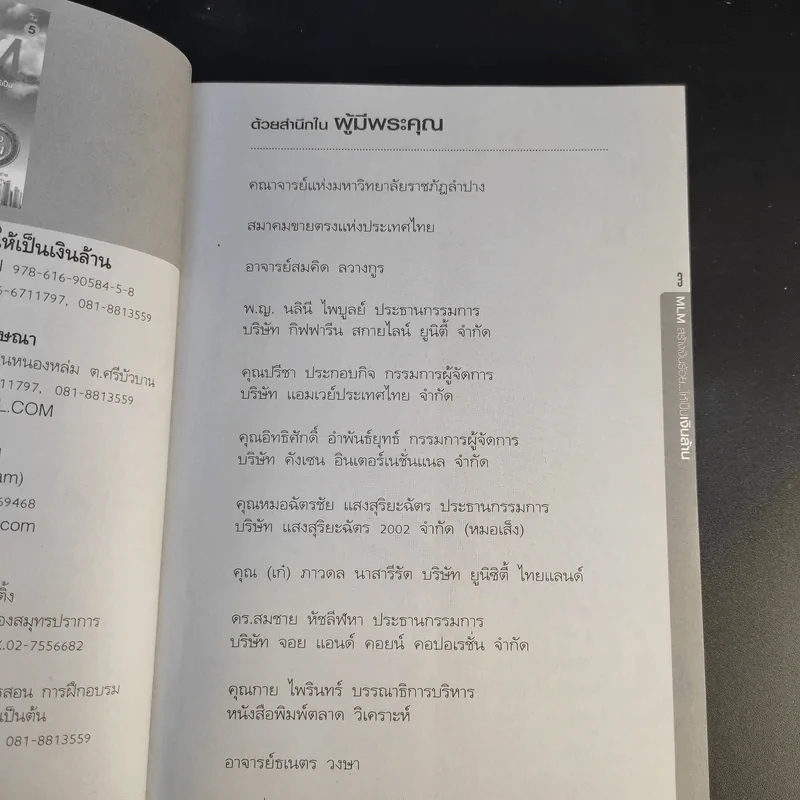 5
ให้เป็นเงินล้าน
978-616-90584-5-8
6711797, 081-8813559
หนองหล่ม ต.ศรีบัวบาน
11797, 081-8813559
L.COM
am)
69468
.com
องสมุทรปราการ
.02-7556682
รสอน การฝึกอบรม
เป็นต้น
081-8813559
ด้วยสำนึกใน ผู้มีพระคุณ
คณาจารย์แห่งมหาวิทยาลัยราชภัฏลำปาง
สมาคมขายตรงแห่งประเทศไทย
อาจารย์สมคิด ลวางกูร
พ.ญ. นลินี ไพบูลย์ ประธานกรรมการ
บริษัท กิฟฟารีน สกายไลน์ ยูนิตี้ จำกัด
คุณปรีชา ประกอบกิจ กรรมการผู้จัดการ
บริษัท แอมเวย์ประเทศไทย จำกัด
คุณอิทธิศักดิ์ อำพันธ์ยุทธ์ กรรมการผู้จัดการ
บริษัท คังเซน อินเตอร์เนชั่นแนล จำกัด
คุณหมอฉัตรชัย แสงสุริยะฉัตร ประธานกรรมการ
บริษัท แสงสุริยะฉัตร 2002 จำกัด (หมอเส็ง)
คุณ (เก๋) ภาวดล นาสารีรัต บริษัท ยูนิซิตี้ ไทยแลนด์
ดร.สมชาย หัชลีฬหา ประธานกรรมการ
บริษัท จอย แอนด์ คอยน์ คอปอเรชั่น จำกัด
คุณกาย ไพรินทร์ บรรณาธิการบริหาร
หนังสือพิมพ์ตลาด วิเคราะห์
อาจารย์ธเนตร วงษา
MLM สร้างเงินร้อย...ให้เป็นเงินล้าน